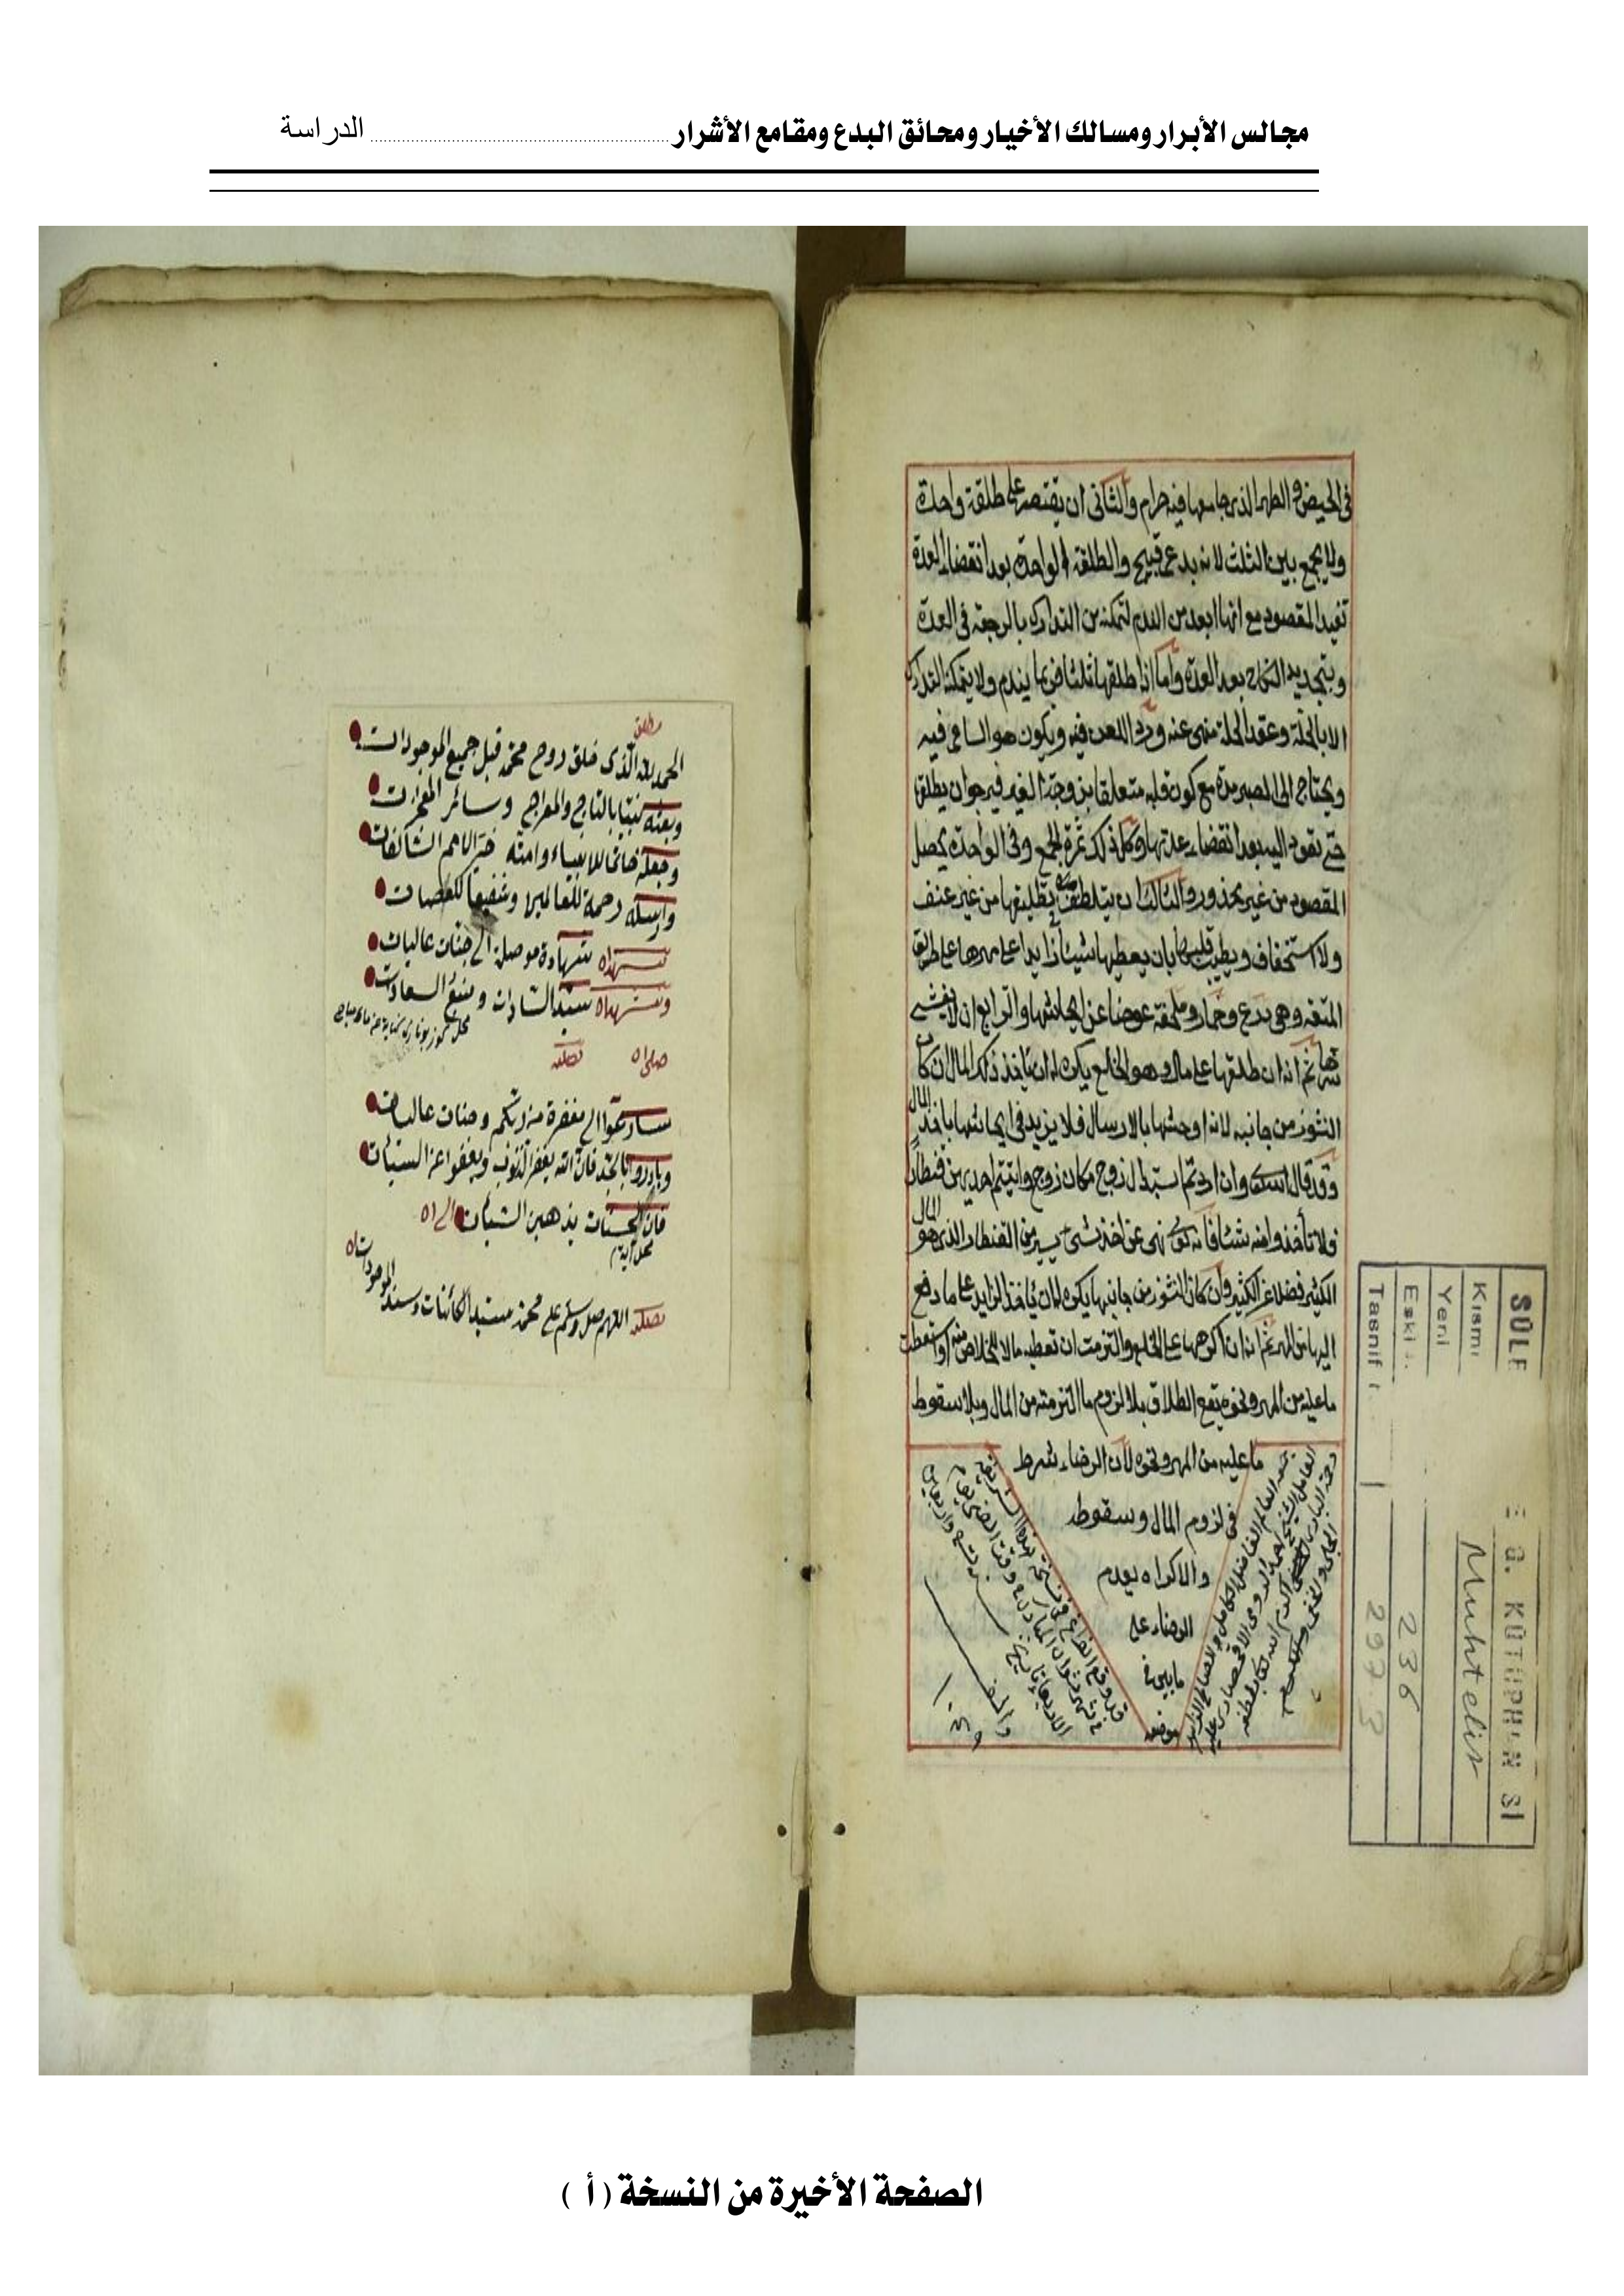 مجالس الأبرار ومسالك الأخيار ومحائق البدع ومقامع الأشرار ........ الدراسة
فى الحيض و الطهر الذى جامعها فيه حرام والثانى ان يقتصر على طلقة واحدة
ولا يجمع بين الثلث لانه بدعى قبيح والطلقة الواحدة بعد انقضاء العدة
تفيد المقصود مع انها ابعد من الندم لتمكنه من التدارك بالرجعة فى العدة
وبتجديد النكاح بعد العدة واما اذا طلقها ثلثا فربما يندم ولا يمكنه التدارك
الا بالحلة وعقد الحلة منهى عنه وفيه ويكون هو الساعى فيه
ويحتاج الى الصبر مدة مع كون قلبه متعلقا بزوجة الغير فيرجو ان يطلق
حتى تعود اليه بعد انقضاء عدتها وكل ذلك ثمرة الجمع وفى الواحدة يحصل
المقصود من غير محذور والثالث ان يتلطف فى تطليقها من غير عنف
ولا استخفاف ويطيب قلبها بان يعطيها شيئا زايدا على مهرها على طريق
المتعة وهى درع وخمار وملحفة عوضا عن ايحاشها والرابع ان لا يفشى
سرها ثم انه ان طلقها على مال وهو الخلع يكره له ان ياخذ ذلك المال ان كان
النشوز من جانبه لانه اوحشها بالارسال فلا يزيد فى ايحاشها باخذ المال
وقد قال وان اردتم استبدال زوج مكان زوج واتيتم احديهن قنطارا
فلا تأخذوا منه شيئا فانه نهى عن اخذ شىء يسير من القنطار الذى هو المال
الكثير فضلا عن الكثير وان كان النشوز من جانبها يكره له ان ياخذ الزايد على ما دفع
اليها من المهر ثم انه ان اكرهها على الخلع والتزمت ان تعطيه مالا للخلاص منه او اسقطت
ما عليه من المهر ونحوه يقع الطلاق بلا لزوم ما التزمته من المال وبلا سقوط
ما عليه من المهر ونحوه لان الرضاء شرط
فى لزوم المال وسقوطه
والاكراه يعدم
الرضاء على
ما بين فى
موضعه
جمعه العالم الفاضل الكامل
الشيخ احمد الرومى الاقحصارى عليه
رحمة البارى
قد وقع الفراغ من
فى شهر شوال المبارك
سنة تسع واربعين
والف
١٠٤٩
SÜLE
G. KÜTÜPH N SI
Kısmı Muhtelis
Yeni
Eski 236
Tasnif 297.3
مطلق
الحمد لله الذى خلق روح محمد قبل جميع الموجودات
وبعثه نبيا بالتاج والمعراج وسائر المعجزات
وجعله خاتما للانبياء وامته خير الامم
وارسله رحمة للعالمين وشفيعا للعصات
نشهد ان شهادة موصلة الى جنات عاليات
ونشهد ان سيد السادات ومنبع السعادات
تصليه
سارعوا الى مغفرة من ربكم وجنات عاليات
وبادروا فان الله يغفر الذنوب ويعفوا عن السيئات
فان الحسنات يذهبن السيئات
محل آية
تصليه اللهم صل وسلم على محمد سيد الكائنات وسند الموجودات
الصفحة الأخيرة من النسخة ( أ )